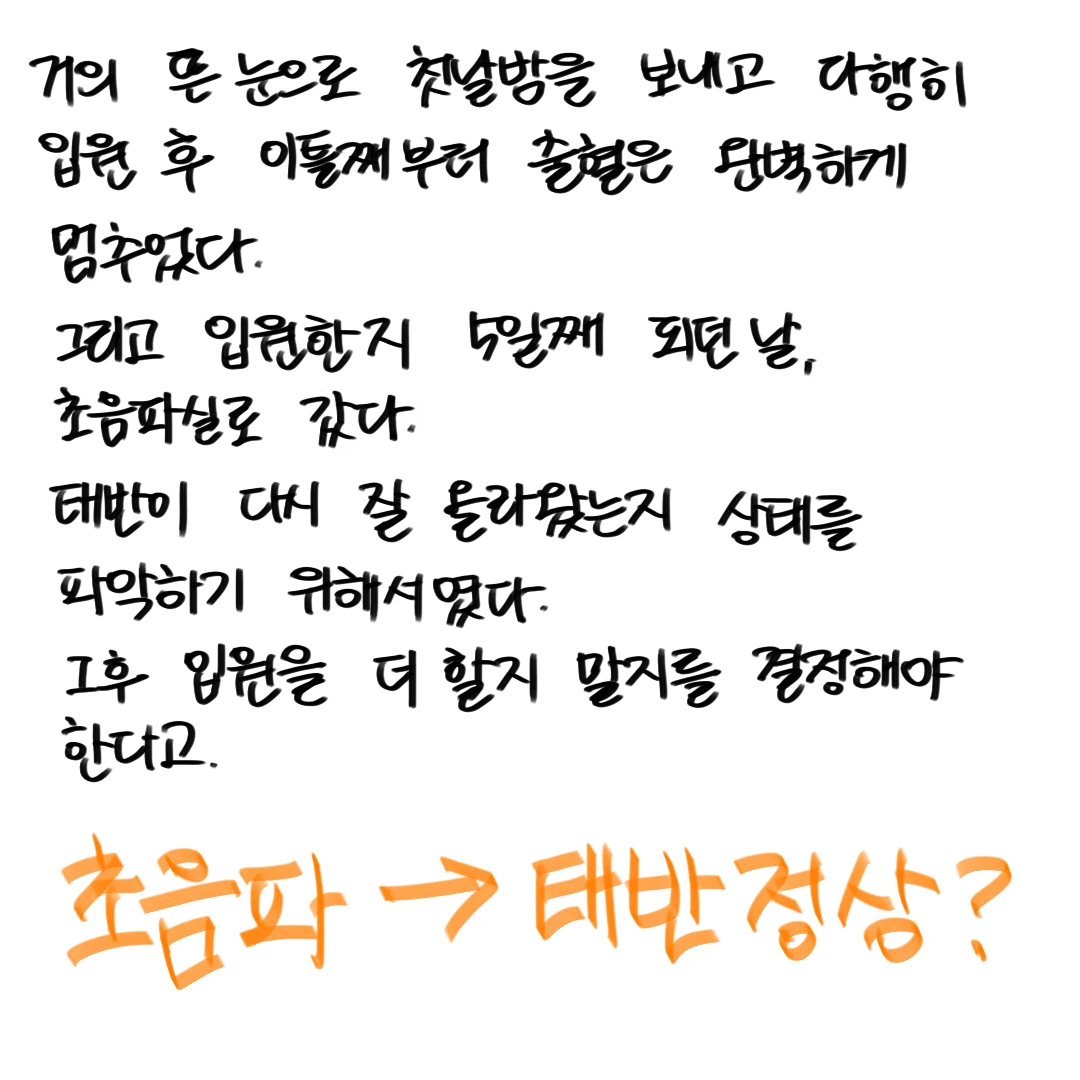 거의 뜬 눈으로 첫날밤을 보내고 다행히
입원 후 이틀째부터 출혈은 완벽하게
멈추었다.
그리고 입원한지 5일째 되던 날,
초음파실로 갔다.
태반이 다시 잘 올라왔는지 상태를
파악하기 위해서였다.
그후 입원을 더 할지 말지를 결정해야
한다고.
초음파 → 태반정상?